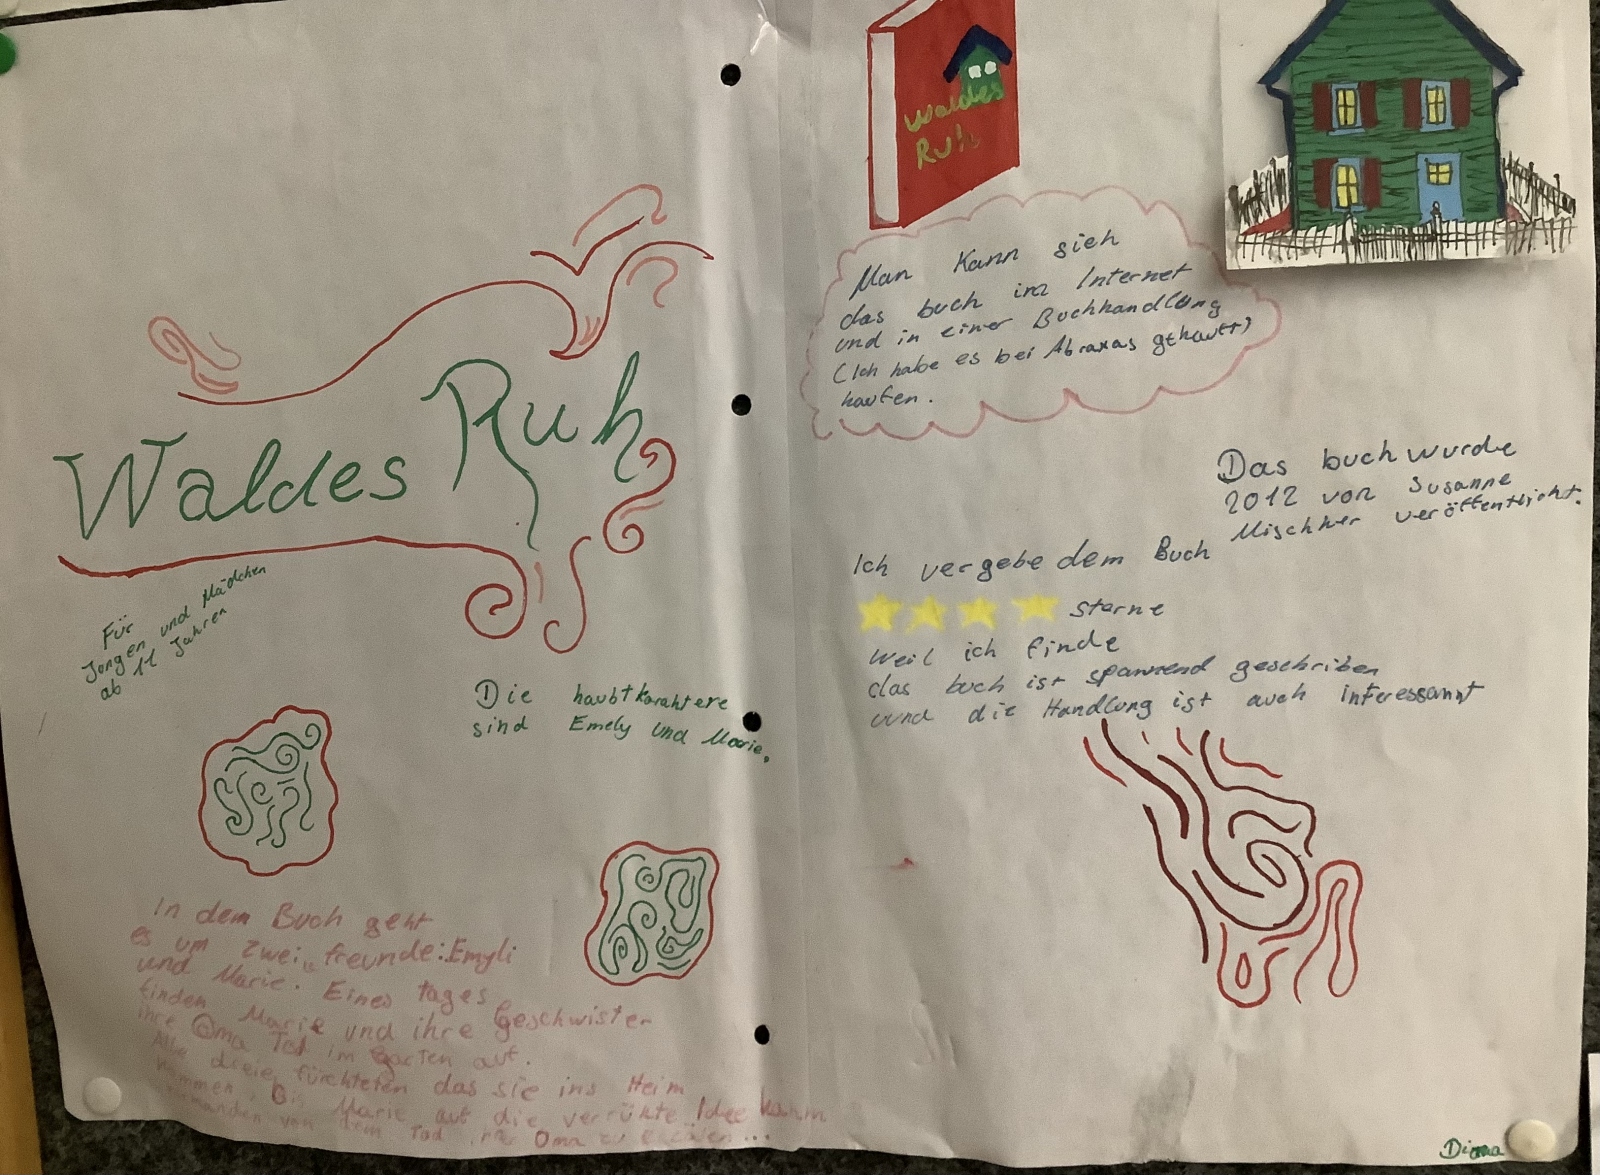 Waldes Ruh
Für
Jongen und Mädchen
ab 11 Jahren
Die haubtkarahtere
sind Emely und Marie.
In dem Buch geht
es um zwei freunde: Emyli
und Marie. Eines tages
finden Marie und ihre Geschwister
ihre Oma Tod im Garten auf.
Alle dreie fürchteten das sie ins Heim
kommen, Bis Marie auf die verrükte Idee kahm
von dem Tod Oma zu
Waldes
Ruh
Man Kann sich
das buch im Internet
und in einer Buchhandlung
(Ich habe es bei Abraxas gekauft)
kaufen.
Das buch wurde
2012 von Susanne
Mischker veröffentlicht.
Ich vergebe dem Buch
Sterne
weil ich finde
das buch ist spannend geschriben
und die Handlung ist auch interessannt